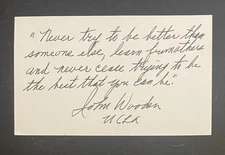 "Never try to be better than
someone else, learn from others
and never cease trying to be
the best that you can be".
John Wooden
UCLA